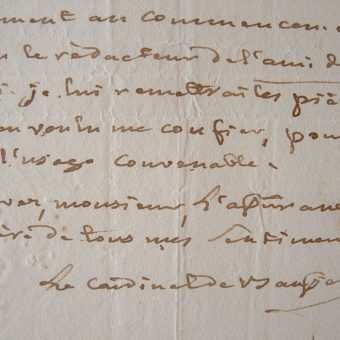 ment au commencem
le rédacteur de l'ami de
je lui remettrai les piè
voulu me confier, pou
l'usage convenable.
monsieur, l'assuran
de tous mes sentimen
le cardinal de